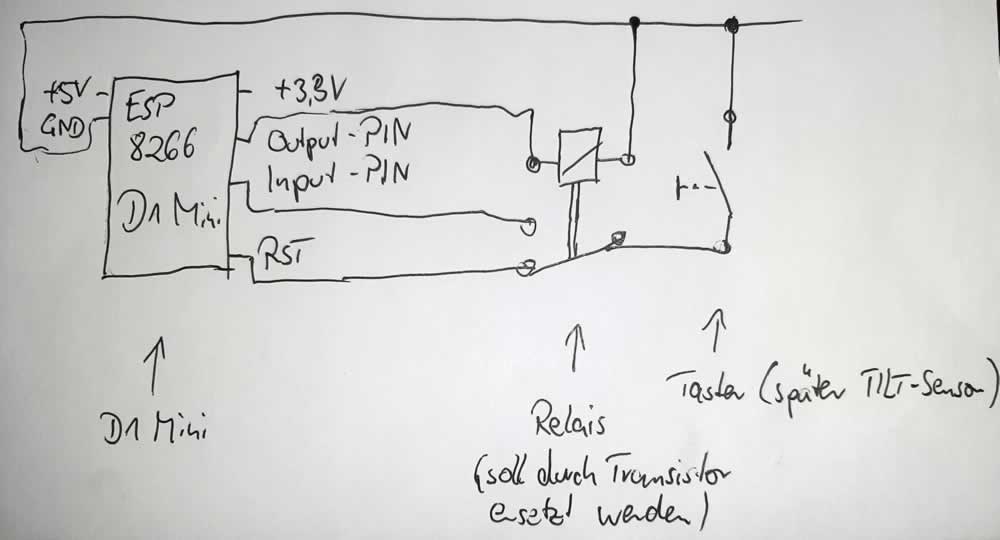 +5V
GND
ESP
8266
D1 Mini
+3,3V
Output-PIN
Input-PIN
RST
D1 Mini
Relais
(soll durch Transistor
ersetzt werden)
Taster (später TILT-Sensor)